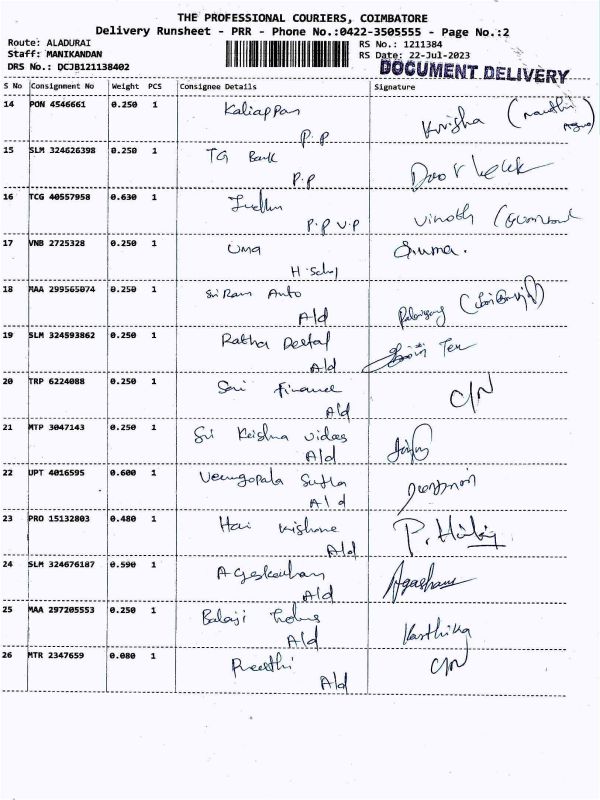 THE PROFESSIONAL COURIERS, COIMBATORE
Delivery Runsheet - PRR - Phone No.:0422-3505555 - Page No.:2
Route: ALADURAI
Staff: MANIKANDAN
DRS No.: DCJB121138402
RS No.: 1211384
RS Date: 22-Jul-2023
DOCUMENT DELIVERY
S No Consignment No Weight PCS Consignee Details Signature
14 PON 4546661 0.250 1 Kaliappan Krisha
P.P
15 SLM 324626398 0.250 1 TG Bank
P.P
16 TCG 40557958 0.630 1 Vinoth
P.P V.P
17 VNB 2725328 0.250 1 Uma S.uma.
18 MAA 299565074 0.250 1 Sri Ram Auto
Ald
19 SLM 324593862 0.250 1 Ratha
Ald
20 TRP 6224088 0.250 1 Sai Finance C/N
Ald
21 MTP 3047143 0.250 1 Sri Krishna Vidas
Ald
22 UPT 4016595 0.600 1
Ald
23 PRO 15132803 0.480 1 Hari Kishore
Ald
24 SLM 324676187 0.590 1
Ald
25 MAA 297205553 0.250 1 Balaji Karthika
Ald
26 MTR 2347659 0.080 1 Preethi C/N
Ald